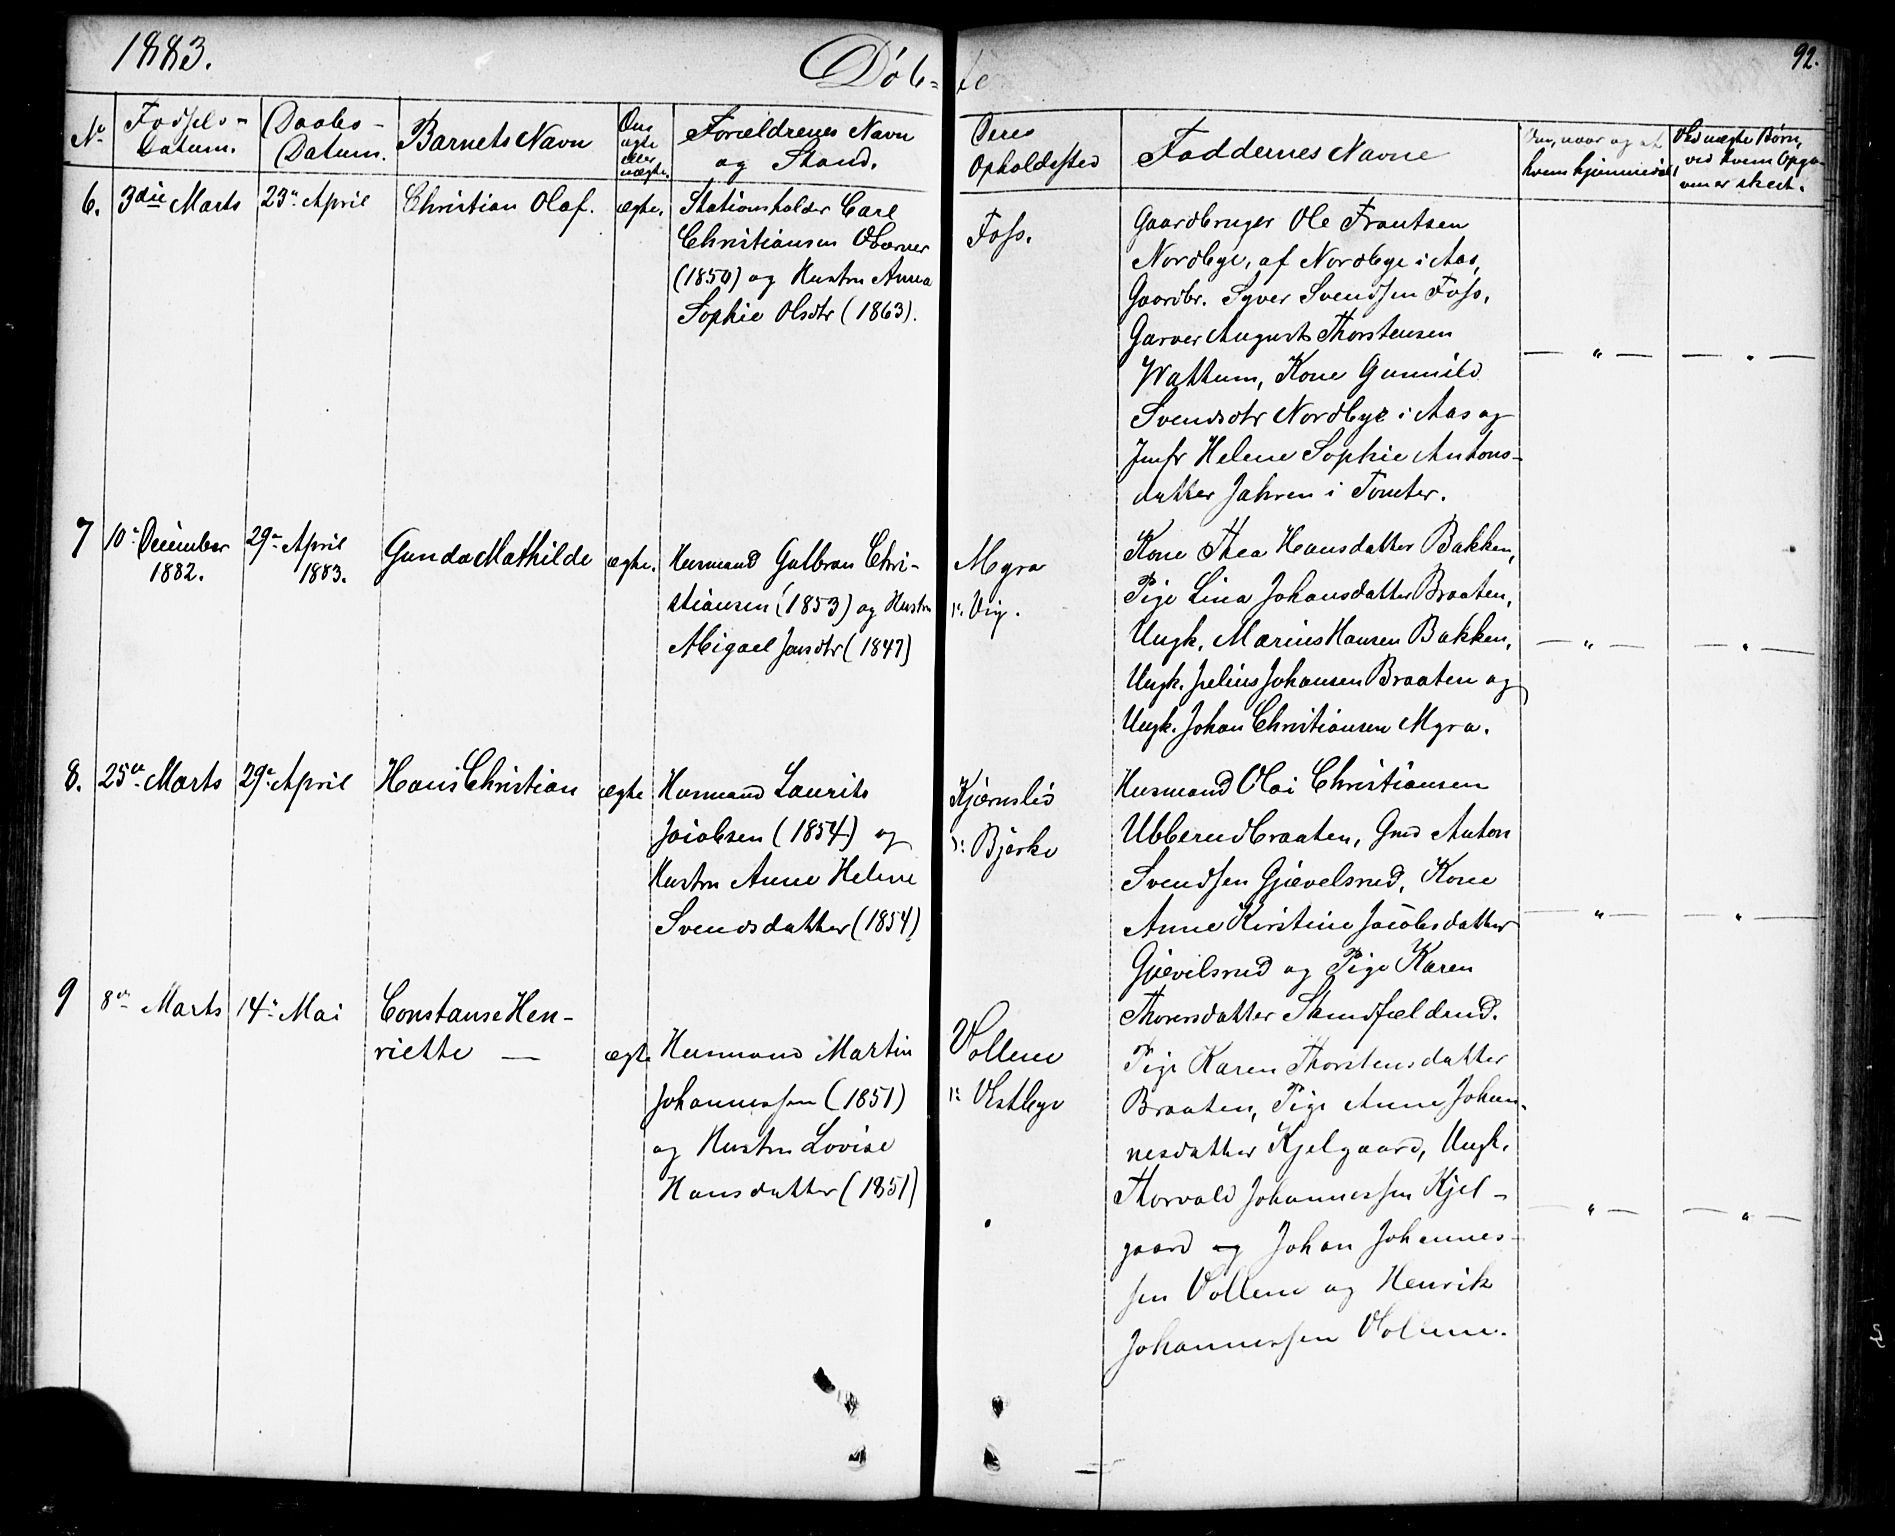 1883.
Døb=te
92.
No
Fødsels-
Datum.
Daabs-
Datum.
Barnets Navn
Om
ægte
eller
uægte.
Forældrenes Navn
og Stand.
Deres
Opholdssted
Faddernes Navne
Om, naar og af
hvem hjemmedøbt
Ved uægte Børn,
ved hvem Opga-
ven er skeet.
6.
3die Marts
23de April
Christian Olaf.
ægte.
Stationsholder Carl
Christiansen
(1850) og Hustru Anna
Sophie Olsdtr (1863).
Foss.
Gaardbruger Ole Frantsen
Nordbye, af Nordbye i Aas,
Gaardbr. Syver Svendsen Foss,
Garver August Thorstensen
Wattum, Kone Gunnild
Svendsdtr Nordbye i Aas og
Jmfr Helene Sophie Antons-
datter Jahren i Tomter.
7
10de December
1882.
29de April
1883.
Gunda Mathilde
ægte.
Husmand Gulbran Chri-
stiansen (1853) og Hustru
Abigael Jensdtr (1847)
Myra
u. Vig.
Kone Thea Hansdatter Bakken,
Pige Lina Johansdatter Braaten,
Ungk. Marius Hansen Bakken,
Ungk. Julius Johansen Braaten og
Ungk. Johan Christiansen Myra.
8.
25de Marts
29de April
Hans Christian
ægte
Husmand Laurits
Jacobsen (1854) og
Hustru Anne Helene
Svendsdatter (1854)
Kjærnslid
u. Bjerke
Husmand Olai Christiansen
Ubberudbraaten, Gmd Anton
Svendsen Gjævelsrud, Kone
Anne Kirstine Jacobsdatter
Gjævelsrud og Pige Karen
Thorersdatter
9
8de Marts
14de Mai
Constanse Hen-
riette —
ægte
Husmand Martin
Johannessen (1851)
og Hustru Lovise
Hansdatter (1851)
Vollene
u. Vestbye
Pige Karen Thorstensdatter
Braaten, Pige Anne Johan-
nesdatter Kjelgaard, Ungk.
Thorvald Johannessen Kjel-
gaard og Johan Johannes-
sen Vollene og Henrik
Johannessen Vollene.